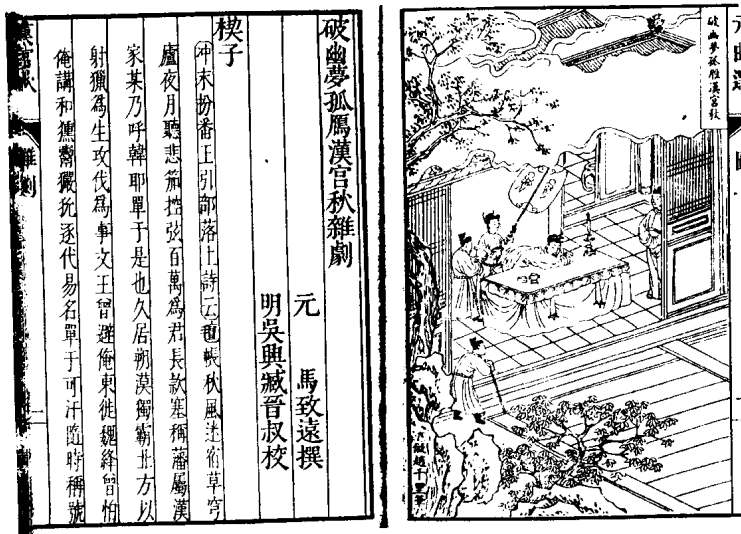 元曲選
圖
破幽夢孤雁漢宮秋
倣趙千里筆
破幽夢孤鴈漢宮秋雜劇
元 馬致遠撰
明吳興臧晉叔校
楔子
冲末扮番王引部落上詩云氊帳秋風迷宿草穹
廬夜月聽悲笳控弦百萬爲君長欵塞稱藩屬漢
家某乃呼韓耶單于是也久居朔漠獨霸北方以
射獵爲生攻伐爲事文王曾避俺東徙魏絳曾怕
俺講和獯鬻獫狁逐代易名單于可汗隨時稱號
漢宮秋
雜劇